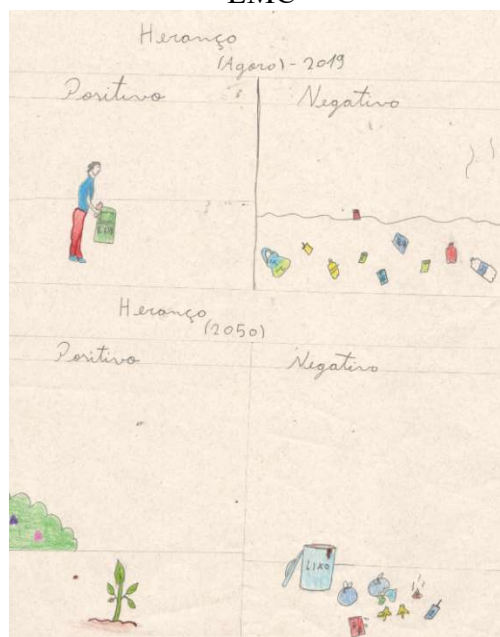 EMC
Herança
(Agora) - 2019
Positivo
Negativo
LIXO
Herança
(2050)
Positivo
Negativo
LIXO